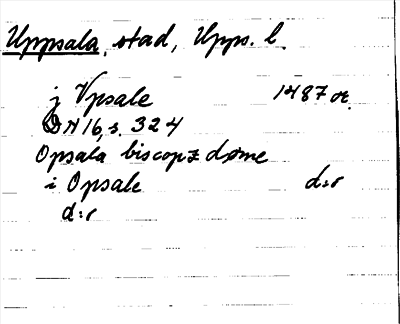 Uppsala, stad, Upps. l.
j Vpsale 1487 or.
DN 16, s. 324
Opsala biscopz døme
i Opsale d:o
d:o